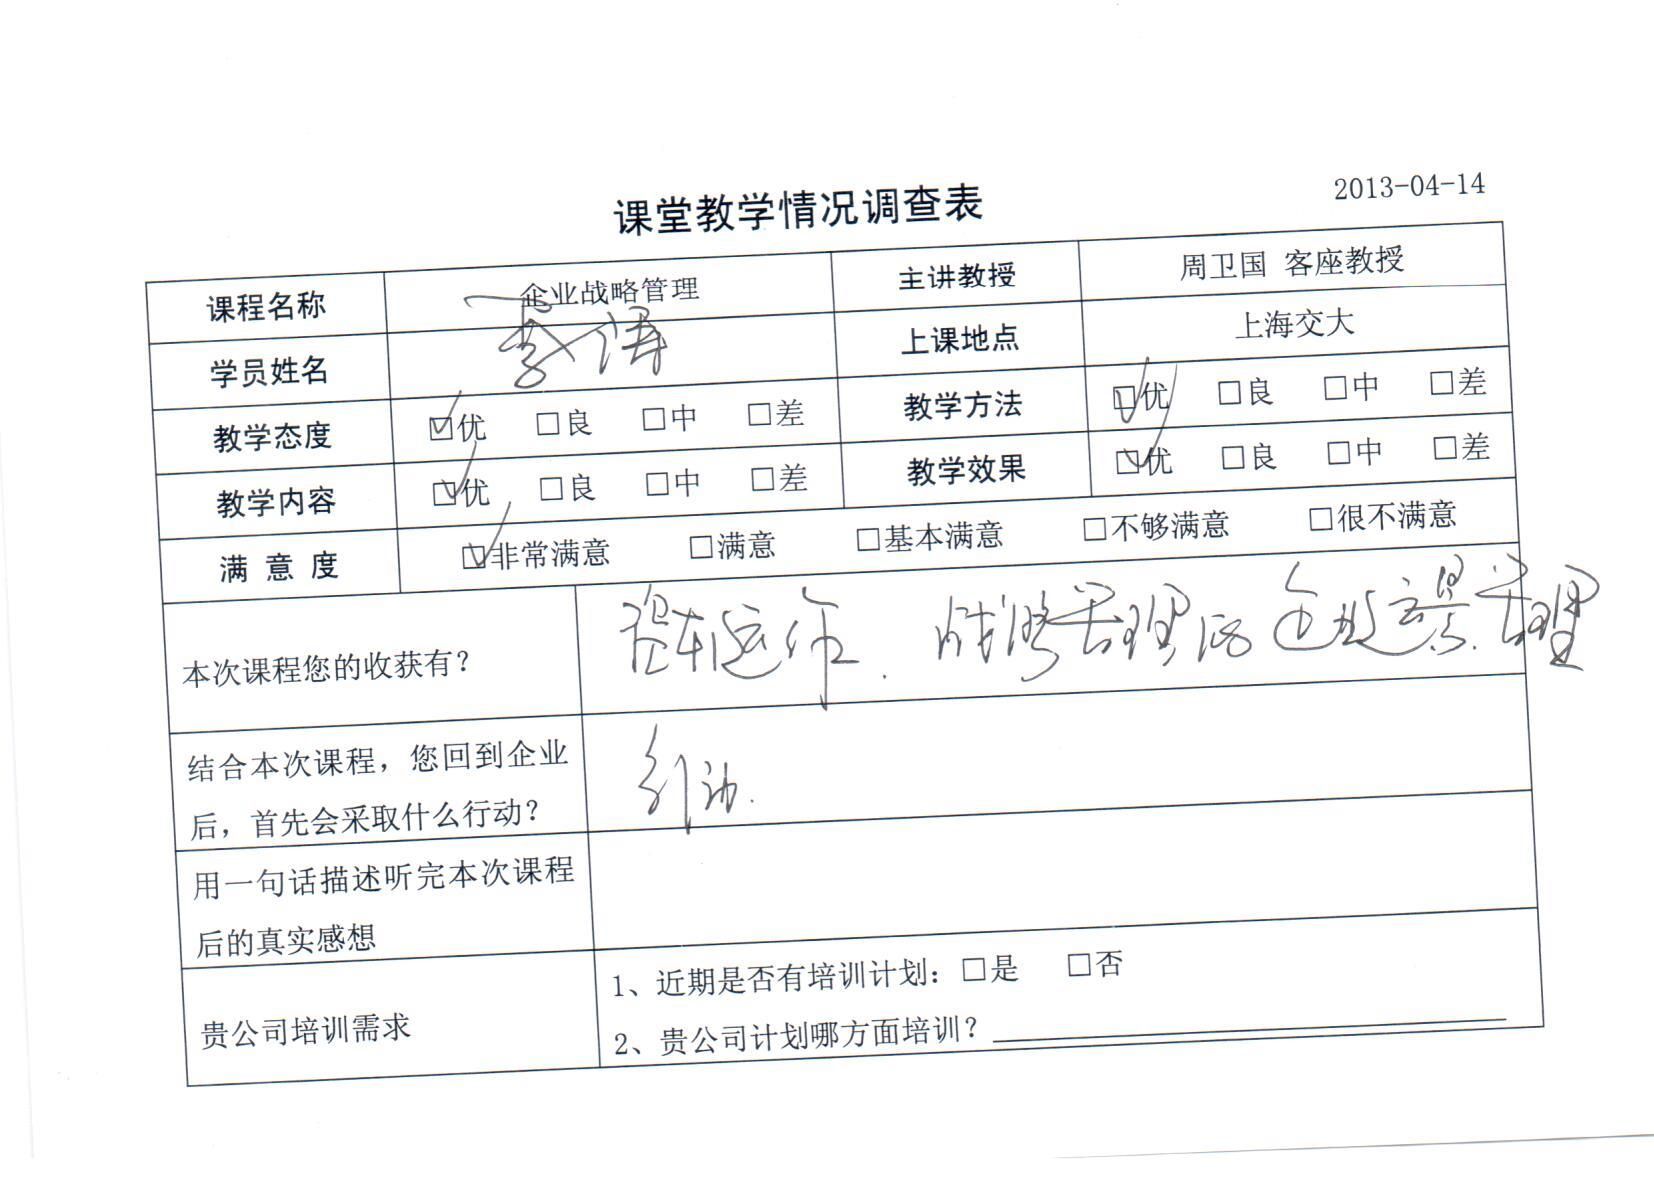 2013-04-14
课堂教学情况调查表
课程名称 企业战略管理 主讲教授 周卫国 客座教授
学员姓名 李涛 上课地点 上海交大
教学态度 ☑优 □良 □中 □差 教学方法 ☑优 □良 □中 □差
教学内容 ☑优 □良 □中 □差 教学效果 ☑优 □良 □中 □差
满意度 ☑非常满意 □满意 □基本满意 □不够满意 □很不满意
本次课程您的收获有？ 资本运作. 战略管理 企业 管理
结合本次课程，您回到企业
后，首先会采取什么行动？
用一句话描述听完本次课程
后的真实感想
贵公司培训需求
1、近期是否有培训计划：□是 □否
2、贵公司计划哪方面培训？